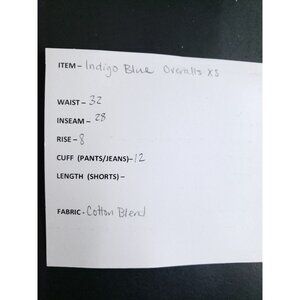 ITEM – Indigo Blue Overalls XS
WAIST – 32
INSEAM – 28
RISE – 8
CUFF (PANTS/JEANS) – 12
LENGTH (SHORTS) –
FABRIC - Cotton Blend